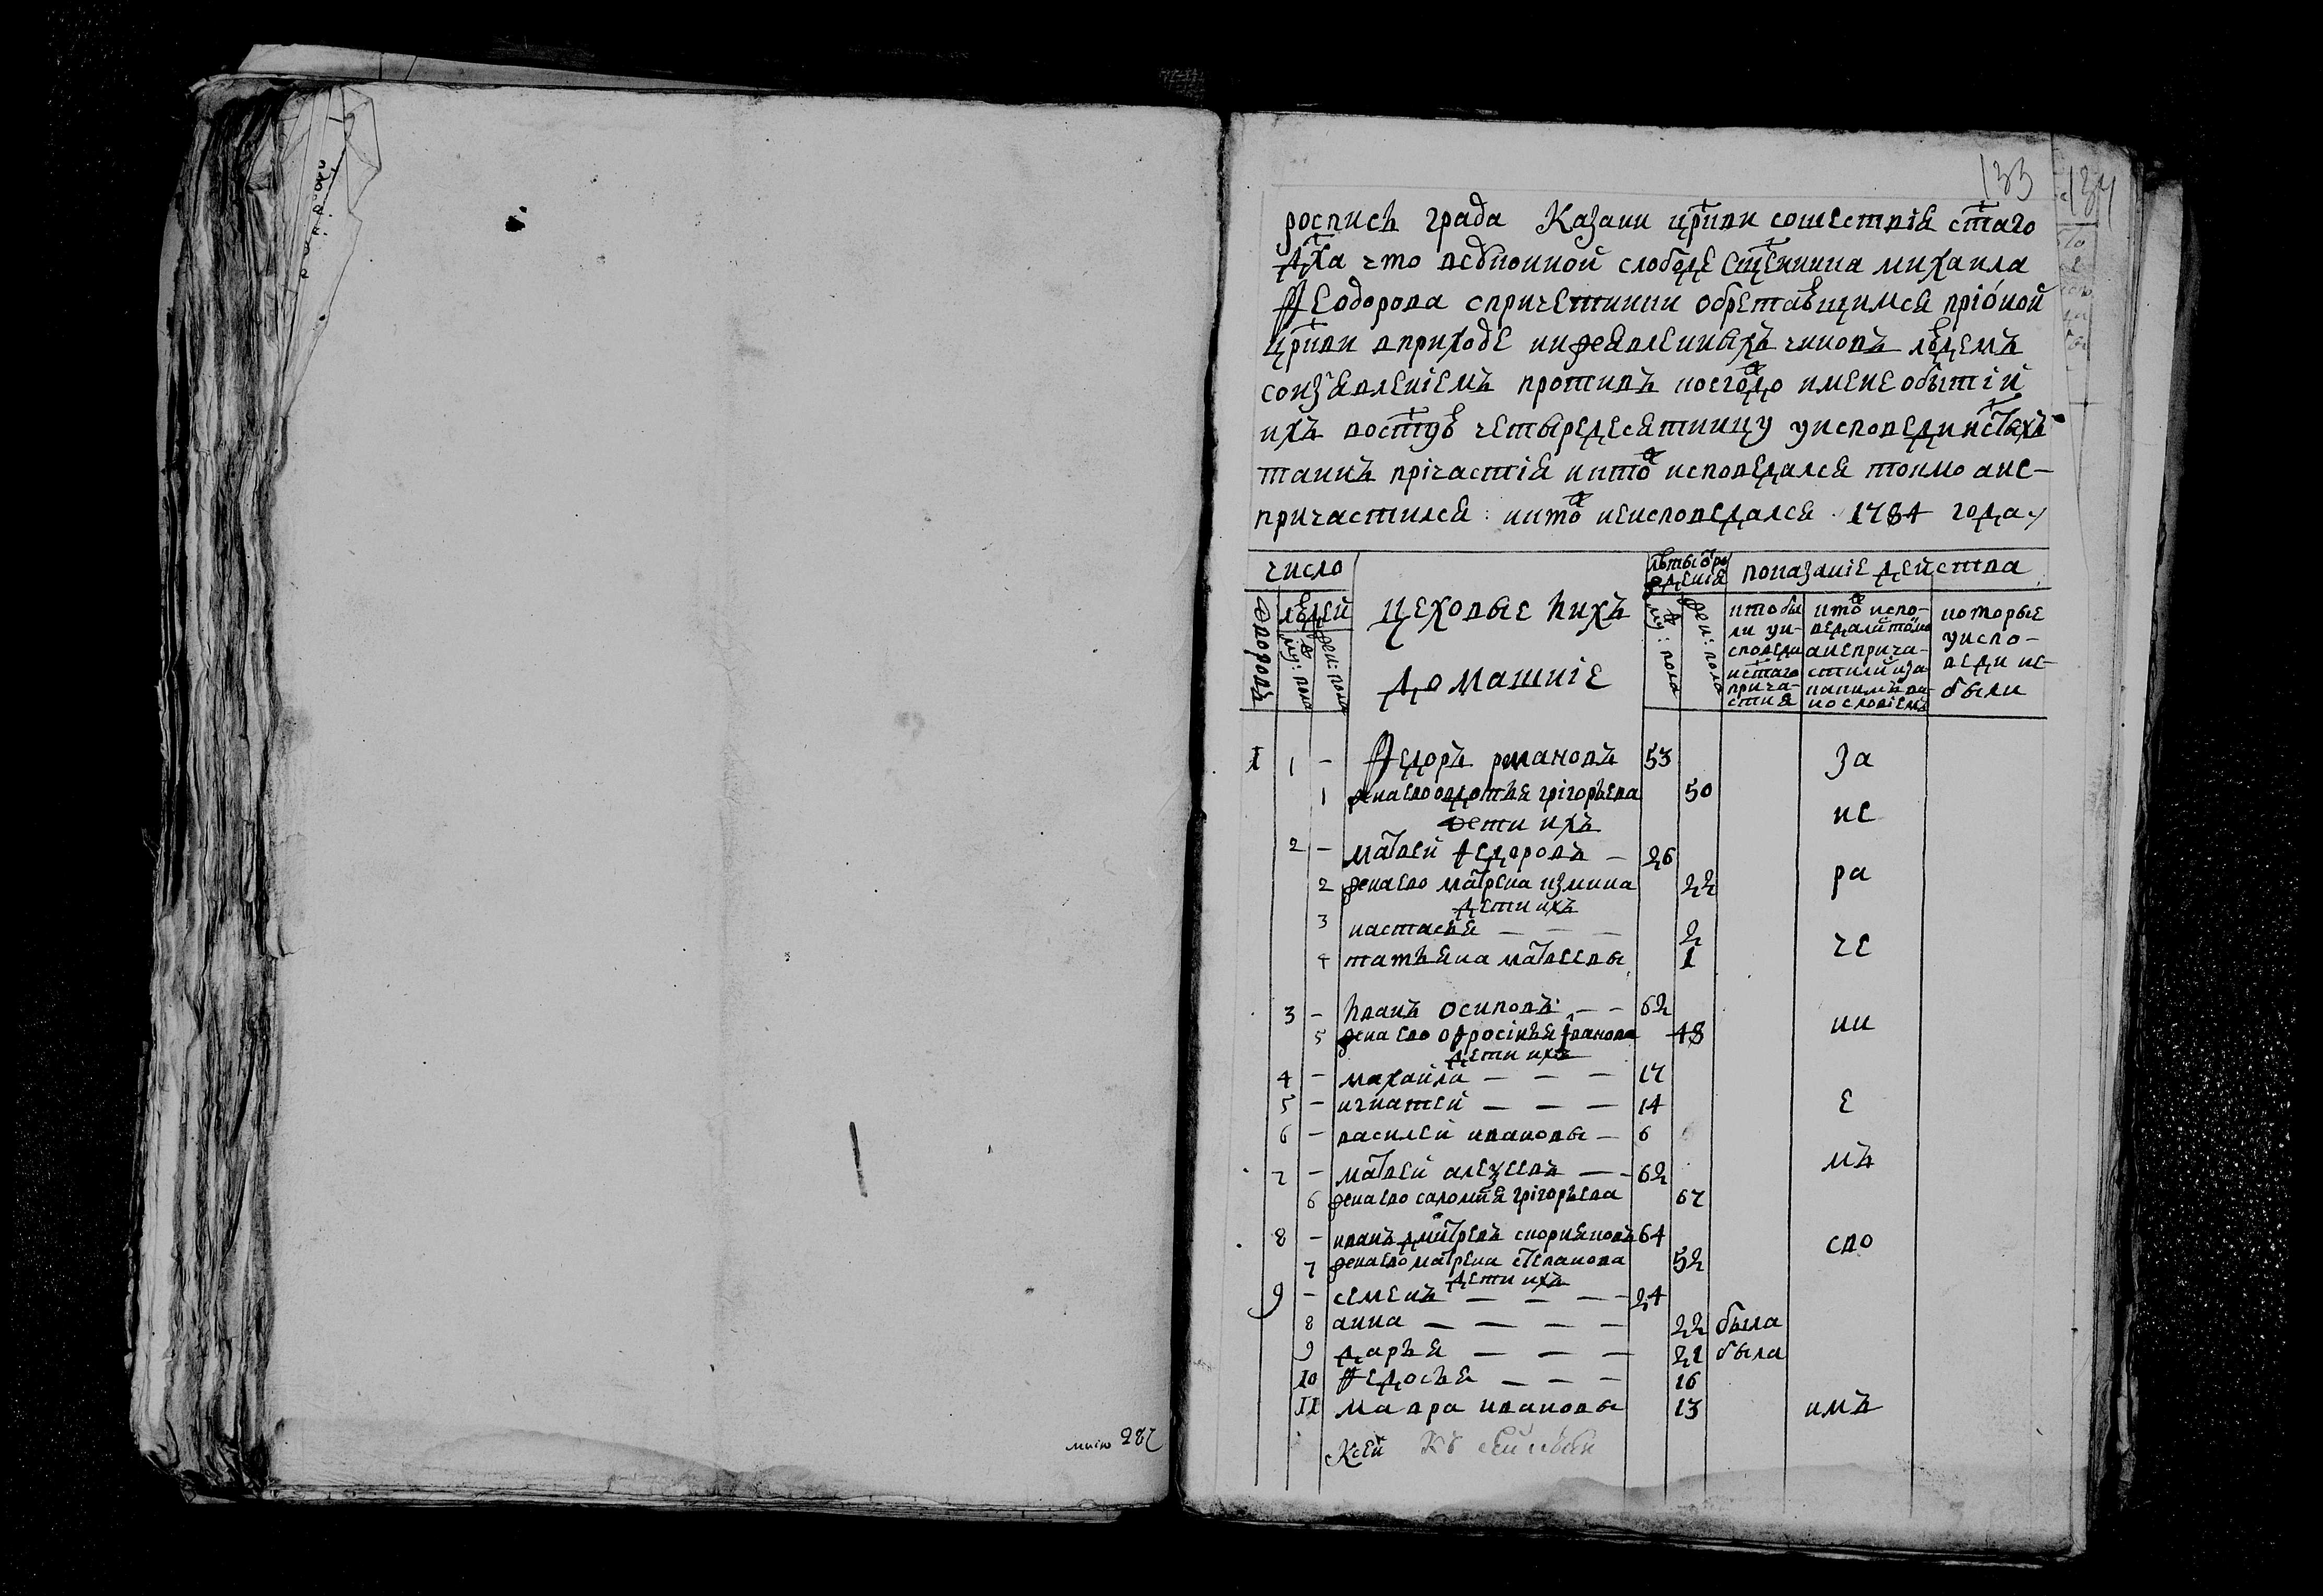 133
134
роспись града Казани цркви сошествія стаго
Дха что в суконной слободе сщенника михаила
Феодорова спричетники обретающимся прионой
цркви в приходе нижеявленныхъ чиновъ людемъ
сонзъявлениемъ противъ коегождо имене о бытіи
ихъ востую четыредесятницу уисповеди истыхъ
таинъ причастія икто исповедался токмо ане-
причастился: икто неисповедался 1784 года
число
людей
дворовъ
му: пола
жен: пола
цеховые ихъ
домашніе
лѣты от рождения
му: пола
жен: пола
показаніе действа
кто были уисповеди истаго причастия
кто исповедали токмо анепричастили иза какимъ винословиемъ
которые уисповеди небыли
I 1 – Федоръ романовъ 53 за
1 жена ево овдотья григорьева 50
дети ихъ не
2 – матвей федоровъ – 26
2 жена ево матрена 22 ра
дети ихъ
3 настасья – – – 2
4 татьяна матвеевы 1 че
3 – иванъ осиповъ – – 62
5 жена ево офросинья иванова 48 ни
дети ихъ
4 – михаила – – – 17
5 – игнатей – – – 14 е
6 – василей ивановы – 6
7 – матвей алезеевъ – – 62 мъ
6 жена ево саломия григорьева 67
8 – иванъ дмитревъ скорняковъ 64 сво
7 жена ево матрена степанова 52
дети ихъ
9 – семенъ – – – 24
8 анна – – – – 22 была
9 дарья – – – 21 была
10 Федосья – – – 16
11 мавра ивановы 13 имъ
Ксей
282